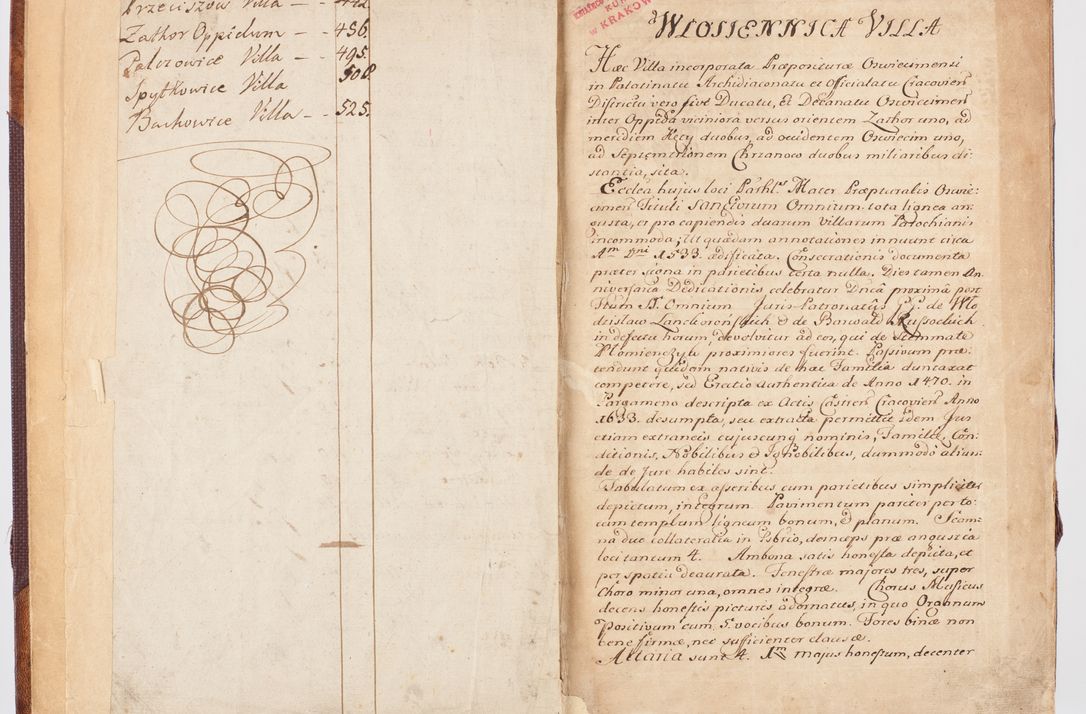 Przeciszow Villa — 442.
Zathor Oppidum — - 486.
Palczowice Villa - - 495.
Spytkowice Villa 508.
Bachowice Villa - - 525.
w KRAKOW
WŁOSIENNICA VILLA
Hæc Villa incorporata Præpositura Oswiecimensi
in Palatinatu Archidiaconatu et Officialatu Cracovien
Districtu vero sive Ducatu, et Decanatu Oswiecimen
inter Oppida viciniora versus orientem Zathor uno, ad
meridiem Kęty duobus, ad occidentem Oswiecim uno,
ad Septemtrionem Chrzanow duobus miliaribus di-
stantia, sita.
Ecclea hujus loci Parhl. Mater Præpturalis Oswie-
cimen Tituli Sanctorum Omnium, tota lignea an-
gusta, et pro capiendis duarum villarum Parochianis
incommoda; Ut quædam annotationes innuunt circa
Am Dni 1533. ædificata. Consecrationis documenta
præter signa in parietibus certa nulla. Dies tamen An-
niversaria Dedicationis celebratur Dncâ proximâ post
Ftum SS. Omnium. Juris Patronatûs de Wło
dzislaw Lanckoroński et de Barwald Russockich
in defectu horum, devolvitur ad eos, qui de Stemmate
Płomienczyk proximiores fuerint. Passivum præ-
tendunt quidem nativis de hac Familia duntaxat
competere, sed Erectio authentica de Anno 1470. in
Pargameno descripta ex Actis Castren Cracovien Anno
1633. desumpta, seu extracta permittit idem Jus
etiam extraneis cujuscunq nominis, Familiæ, Con-
ditionis, Nobilibus et Ignobilibus, dummodò aliun-
de de Jure habiles sint.
Tabulatum ex asseribus cum parietibus simpliciter
depictum, integrum. Pavimentum pariter per to-
tum templum ligneum bonum, et planum. Scam-
na duo collateralia in deinceps præ angustia
loci tantum 4. Ambona satis honesta depicta, et
per spatia deaurata. Fenestræ majores tres, super
Choro minor una, omnes integræ. Chorus Musicus
decens honestis picturis adornatus, in quo Organum
Positivum cum 5. vocibus bonum. Fores binæ non
bene firmæ, nec sufficienter clausæ.
Altaria sunt 4. 1m majus honestum, decenter